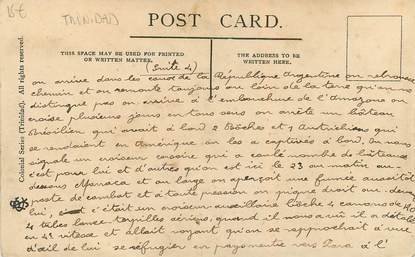 TRINIDAD
POST CARD.
THIS SPACE MAY BE USED FOR PRINTED
OR WRITTEN MATTER.
THE ADDRESS TO BE
WRITTEN HERE.
Colonial Series (Trinidad). All rights reserved.
(Suite 4)
on arrive dans les eaux de la République Argentine on rebrousse
chemin et on remonte toujours au loin de la terre qu'on ne
distingue pas on arrive à l'embouchure de l'Amazone on
croise plusieurs jours en tous sens on arrête un bâteau
Brésilien qui avait à bord 2 Bôches et 1 Autrichiens qui
se rendaient en Amérique on les a captivés à bord. On nous
signale un croiseur cosaire qui a coulé nombre de bâteaux
c'est pour lui et d'autres qu'on est ici le 23 au matin
dessous et au large on aperçoit une fumée aussitôt
poste de combat et à toute pression on pique droit sur
lui, c'était un croiseur auxiliaire 4 canons de
4 tubes lance torpilles aériens, quand il nous a vu il a détalé
en 4e vitesse et allait voyant qu'on se rapprochait à vue
d'œil de lui se réfugier en pays vers à l'